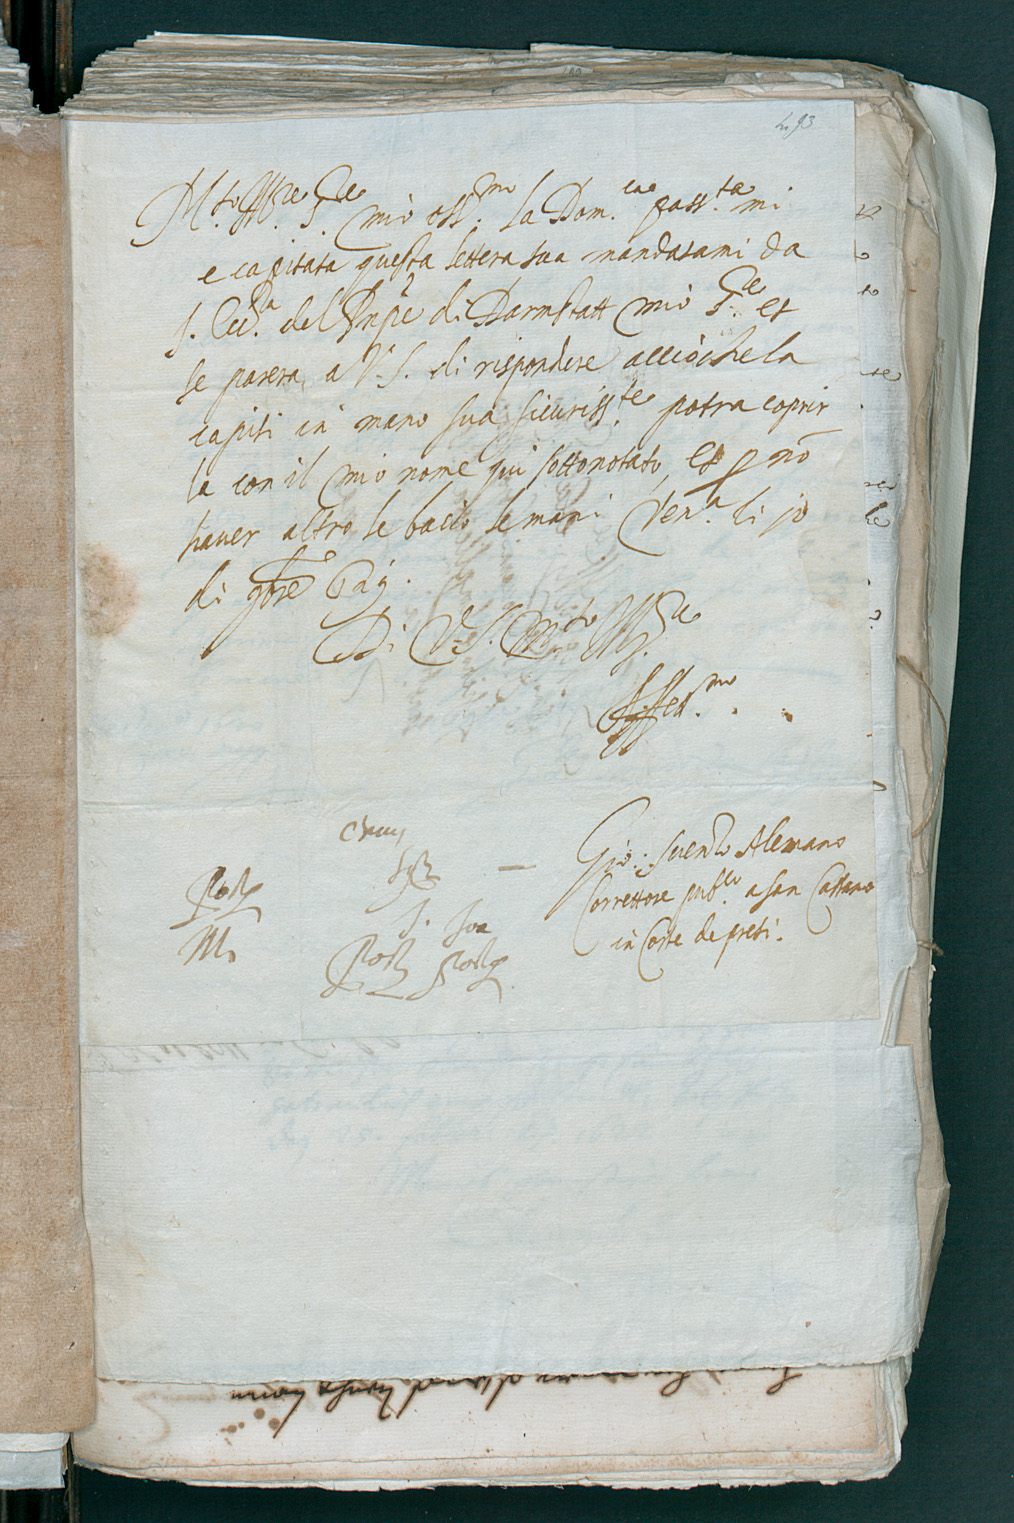 493
M.to Ill.re S.re mio oss.mo la Dom.ca pass.ta mi
e capitata questa lettera sua mandatami da
S. Ecc.a del Prn̄pe di Darmstatt mio S.re et
se parera a V. S. di rispondere acciòche la
capiti in mano sua sicuriss.te potra coprir
la con il mio nome qui sottonotato, et p nō
haver altro le bacio le mani Ven.a li jo
di
Di V. S. M.to Ill.re
Affed.mo
Gio: Alemano
Correttore pub.co a san Cassano
in Corte de preti.
S. sua
M.